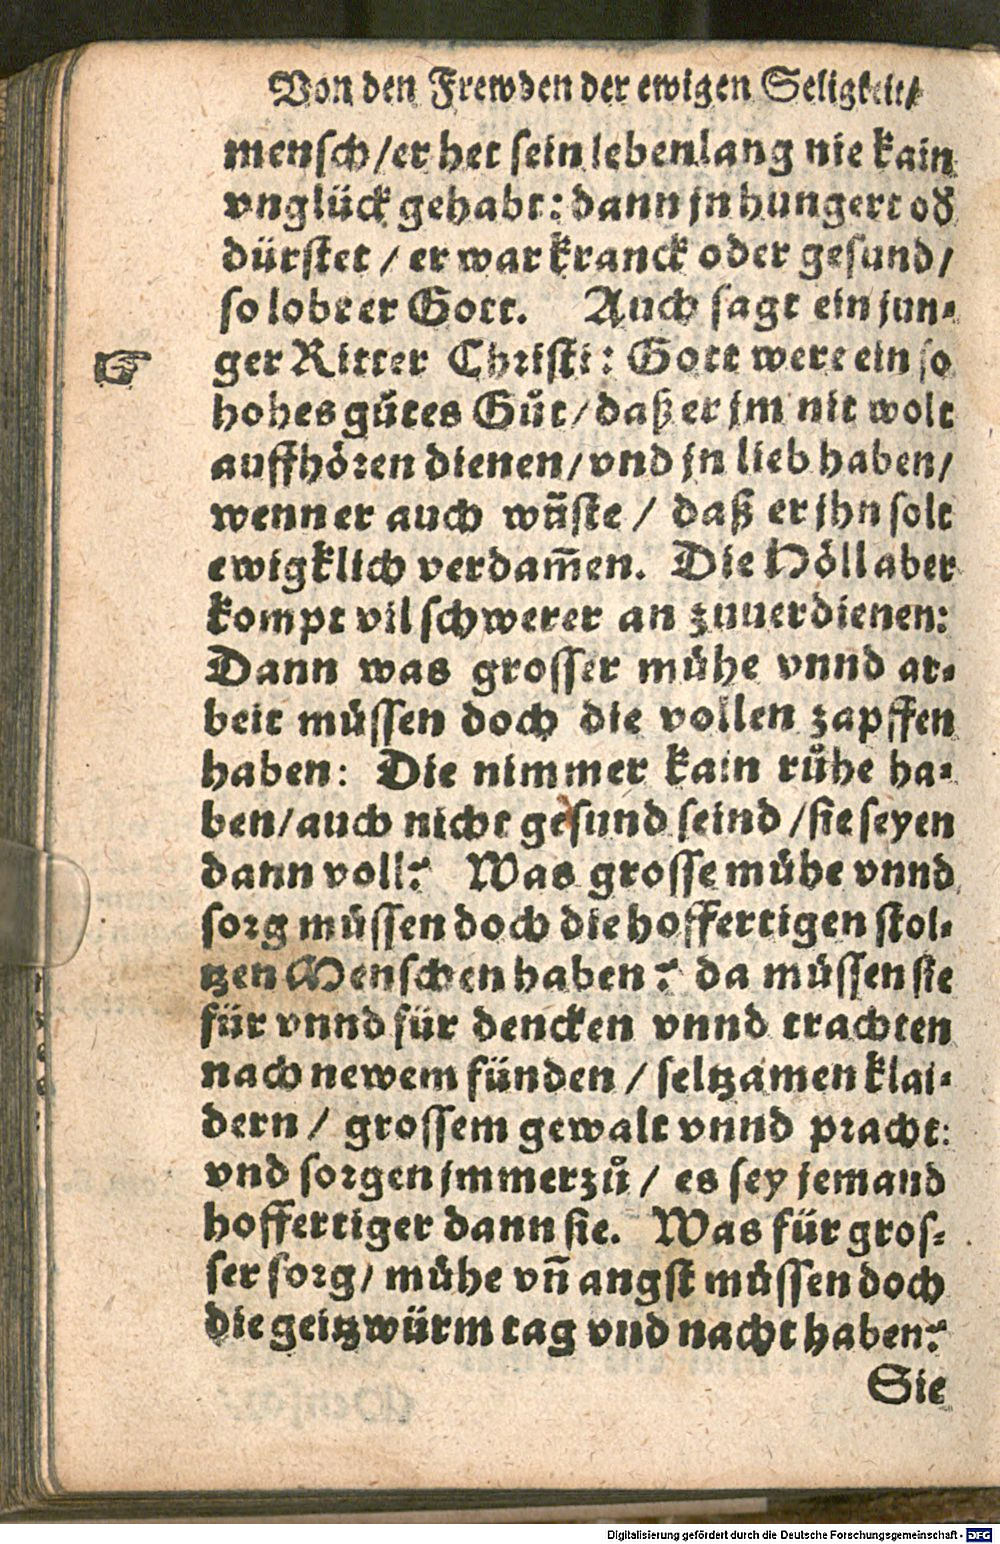 Von den Frewden der ewigen Seligkeit/
mensch/er het sein lebenlang nie kain
vnglück gehabt: dann jn hungert oď
dürstet / er war kranck oder gesund/
so lobt er Gott. Auch sagt ein jun-
☞ ger Ritter Christi: Gott were ein so
hohes gůtes Gůt/daß er jm nit wolt
auffhören dienen/vnd jn lieb haben/
wenn er auch wůste / daß er jhn solt
ewigklich verdam̄en. Die Höll aber
kompt vil schwerer an zuuerdienen:
Dann was grosser mühe vnnd ar-
beit müssen doch die vollen zapffen
haben: Die nimmer kain růhe ha-
ben/auch nicht gesund seind /sie seyen
dann voll? Was grosse mühe vnnd
sorg müssen doch die hoffertigen stol-
tzen Menschen haben? da müssen sie
für vnnd für dencken vnnd trachten
nach newem fünden / seltzamen klai-
dern / grossem gewalt vnnd pracht:
vnd sorgen jmmerzů / es sey jemand
hoffertiger dann sie. Was für gros-
ser sorg/ mühe vn̄ angst müssen doch
die geitzwürm tag vnd nacht haben?
Sie
Digitalisierung gefördert durch die Deutsche Forschungsgemeinschaft - DFG